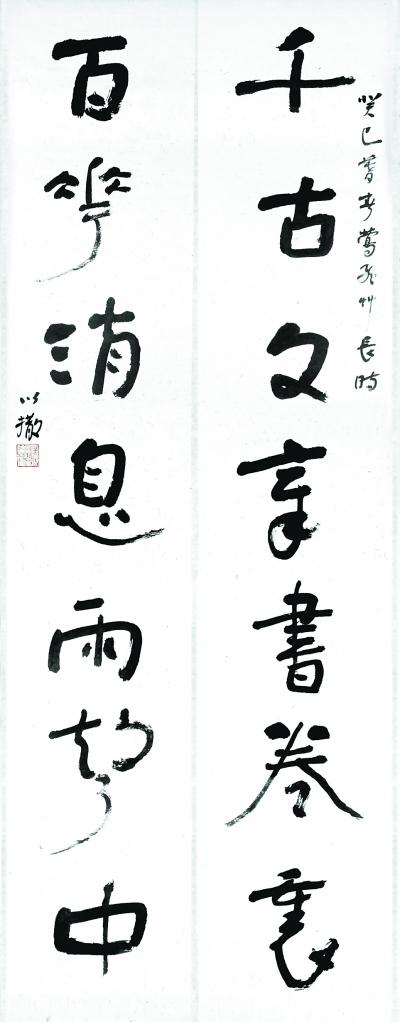 癸巳暮春鶯飛艸長時
千古文章書卷裏
百花消息雨聲中
以撒